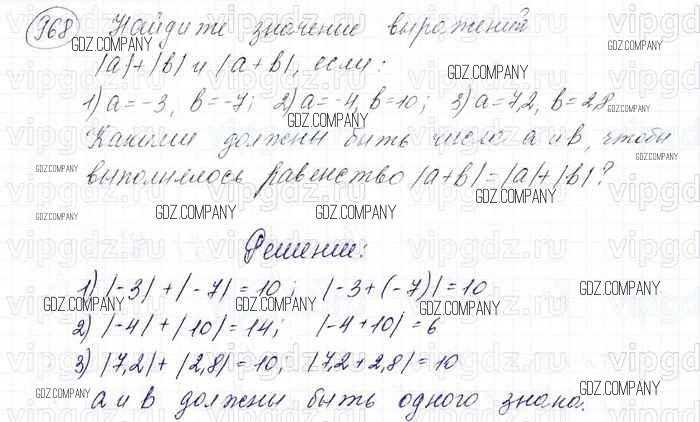 968 Найдите значение выражений
|a|+|b| и |a+b|, если:
1) a=-3, b=-7; 2) a=-4, b=10; 3) a=7,2, b=2,8
Какими должны быть числа a и b, чтобы
выполнялось равенство |a+b|=|a|+|b|?
Решение:
1) |-3|+|-7|=10; |-3+(-7)|=10
2) |-4|+|10|=14; |-4+10|=6
3) |7,2|+|2,8|=10, |7,2+2,8|=10
a и b должны быть одного знака.
GDZ.COMPANY
vipgdz.ru